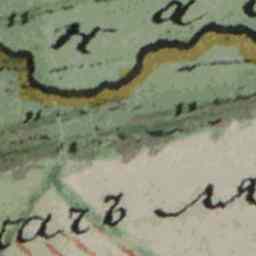 на
тачъ ля